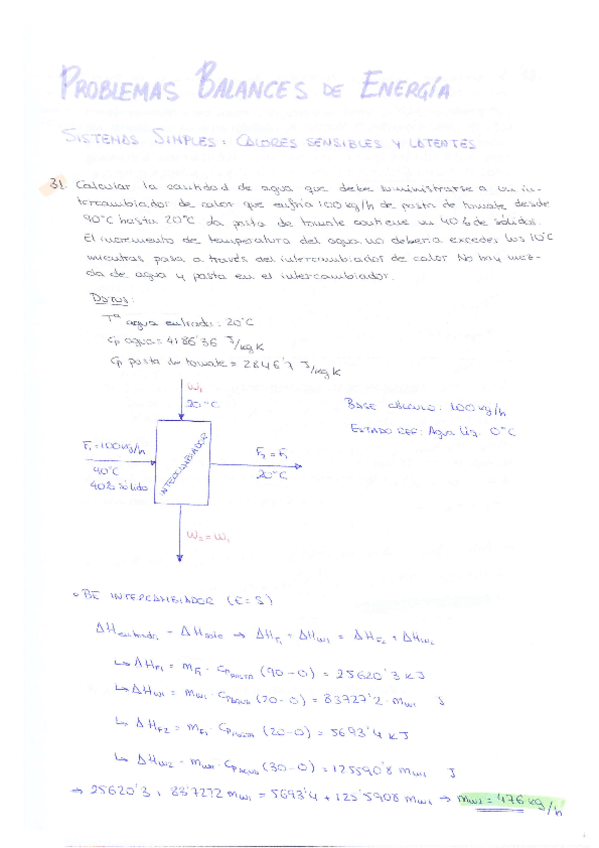 PROBLEMAS BALANCES DE ENERGÍA
SISTEMAS SIMPLES: CALORES SENSIBLES Y LATENTES
31. Calcular la cantidad de agua que debe suministrarse a un in-
tercambiador de calor que enfría 100 kg/h de pasta de tomate desde
90°C hasta 20°C. La pasta de tomate contiene un 40% de sólidos.
El incremento de temperatura del agua no debería exceder los 10°C
mientras pasa a través del intercambiador de calor. No hay mez-
cla de agua y pasta en el intercambiador.
Datos:
Tª agua entrada: 20°C
Cp agua = 4186'36 J/kg K
Cp pasta de tomate = 2846'7 J/kg K
W₁
20°C
BASE CÁLCULO: 100 kg/h
ESTADO REF: Agua Liq. 0°C
F₁ = 100 kg/h
40°C
40% sólido
INTERCAMBIADOR
F₂ = F₁
20°C
W₂ = W₁
• BE INTERCAMBIADOR (E = S)
ΔH entrada = ΔH sale → ΔH F₁ + ΔH W₁ = ΔH F₂ + ΔH W₂
↳ ΔH F₁ = m F₁ · Cp PASTA (90-0) = 25620'3 KJ
↳ ΔH W₁ = m W₁ · Cp AGUA (20-0) = 83727'2 · m W₁ J
↳ ΔH F2 = m F₁ · Cp PASTA (20-0) = 5693'4 KJ
↳ ΔH W2 = m W₁ · Cp AGUA (30-0) = 125590'8 m W₁ J
→ 25620'3 + 83'7272 m W₁ = 5693'4 + 125'5908 m W₁ → m W₂ = 476 kg/h